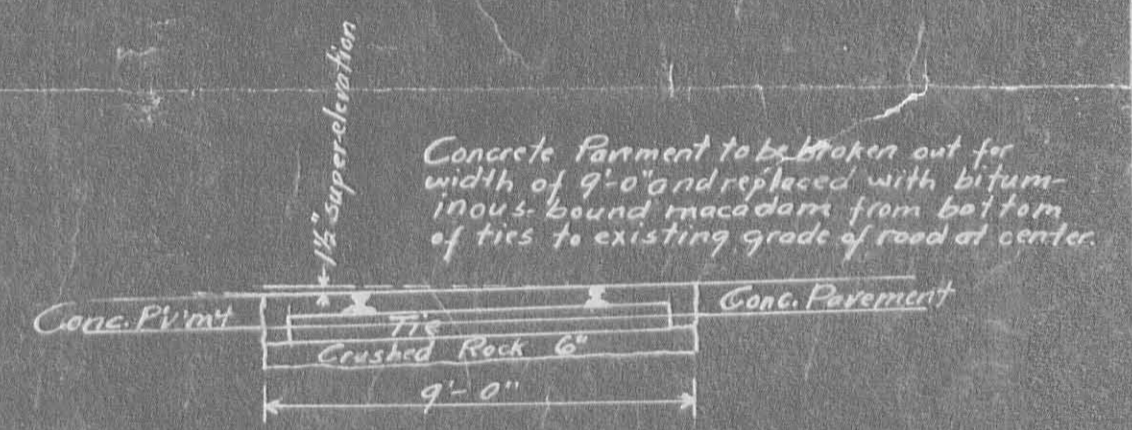 1½" super-elevation
Concrete Pavement to be broken out for
width of 9'-0" and replaced with bitum-
inous-bound macadam from bottom
of ties to existing grade of road at center.
Conc. Pv'mt
Conc. Pavement
Tie
Crushed Rock 6"
9'-0"